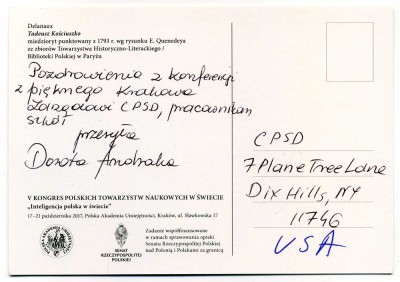 Delanaux
Tadeusz Kościuszko
miedzioryt punktowany z 1793 r. wg rysunku E. Quenedeya
ze zbiorów Towarzystwa Historyczno-Literackiego /
Biblioteki Polskiej w Paryżu
Pozdrowienia z konferencji
z pięknego Krakowa
Zarządowi CPSD, pracownikom
szkół
przesyła
Dorota Andraka
CPSD
7 Plane Tree Lane
Dix Hills, NY
11746
USA
V KONGRES POLSKICH TOWARZYSTW NAUKOWYCH W ŚWIECIE
„Inteligencja polska w świecie”
17–21 października 2017, Polska Akademia Umiejętności, Kraków, ul. Sławkowska 17
SENAT
RZECZYPOSPOLITEJ
POLSKIEJ
Zadanie współfinansowane
w ramach sprawowania opieki
Senatu Rzeczypospolitej Polskiej
nad Polonią i Polakami za granicą